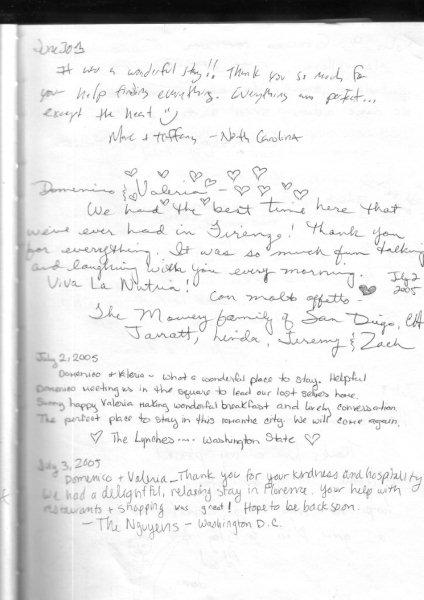 June 30
It was a wonderful stay!! Thank you so much for
your help finding everything. Everything was perfect...
except the heat
Marc + Tiffany - North Carolina
Domenico & Valeria -
We had the best time here that
we've ever had in Firenze! Thank you
for everything. It was so much fun talking
and laughing with you every morning.
Viva La Nutria!
July 2
2005
Con molto affetto -
The Mowrey family of San Diego, CA
Jarratt, Linda, Jeremy & Zach
July 2, 2005
Domenico + Valeria - What a wonderful place to stay. Helpful
Domenico meeting us in the square to lead our lost selves here.
Sunny happy Valeria making wonderful breakfast and lively conversation.
The perfect place to stay in this romantic city. We will come again.
The Lynches.... Washington State
July 3, 2005
Domenico + Valeria - Thank you for your kindness and hospitality
We had a delightful, relaxing stay in Florence. Your help with
restaurants + shopping was great! Hope to be back soon.
- The Nguyens - Washington D.C.